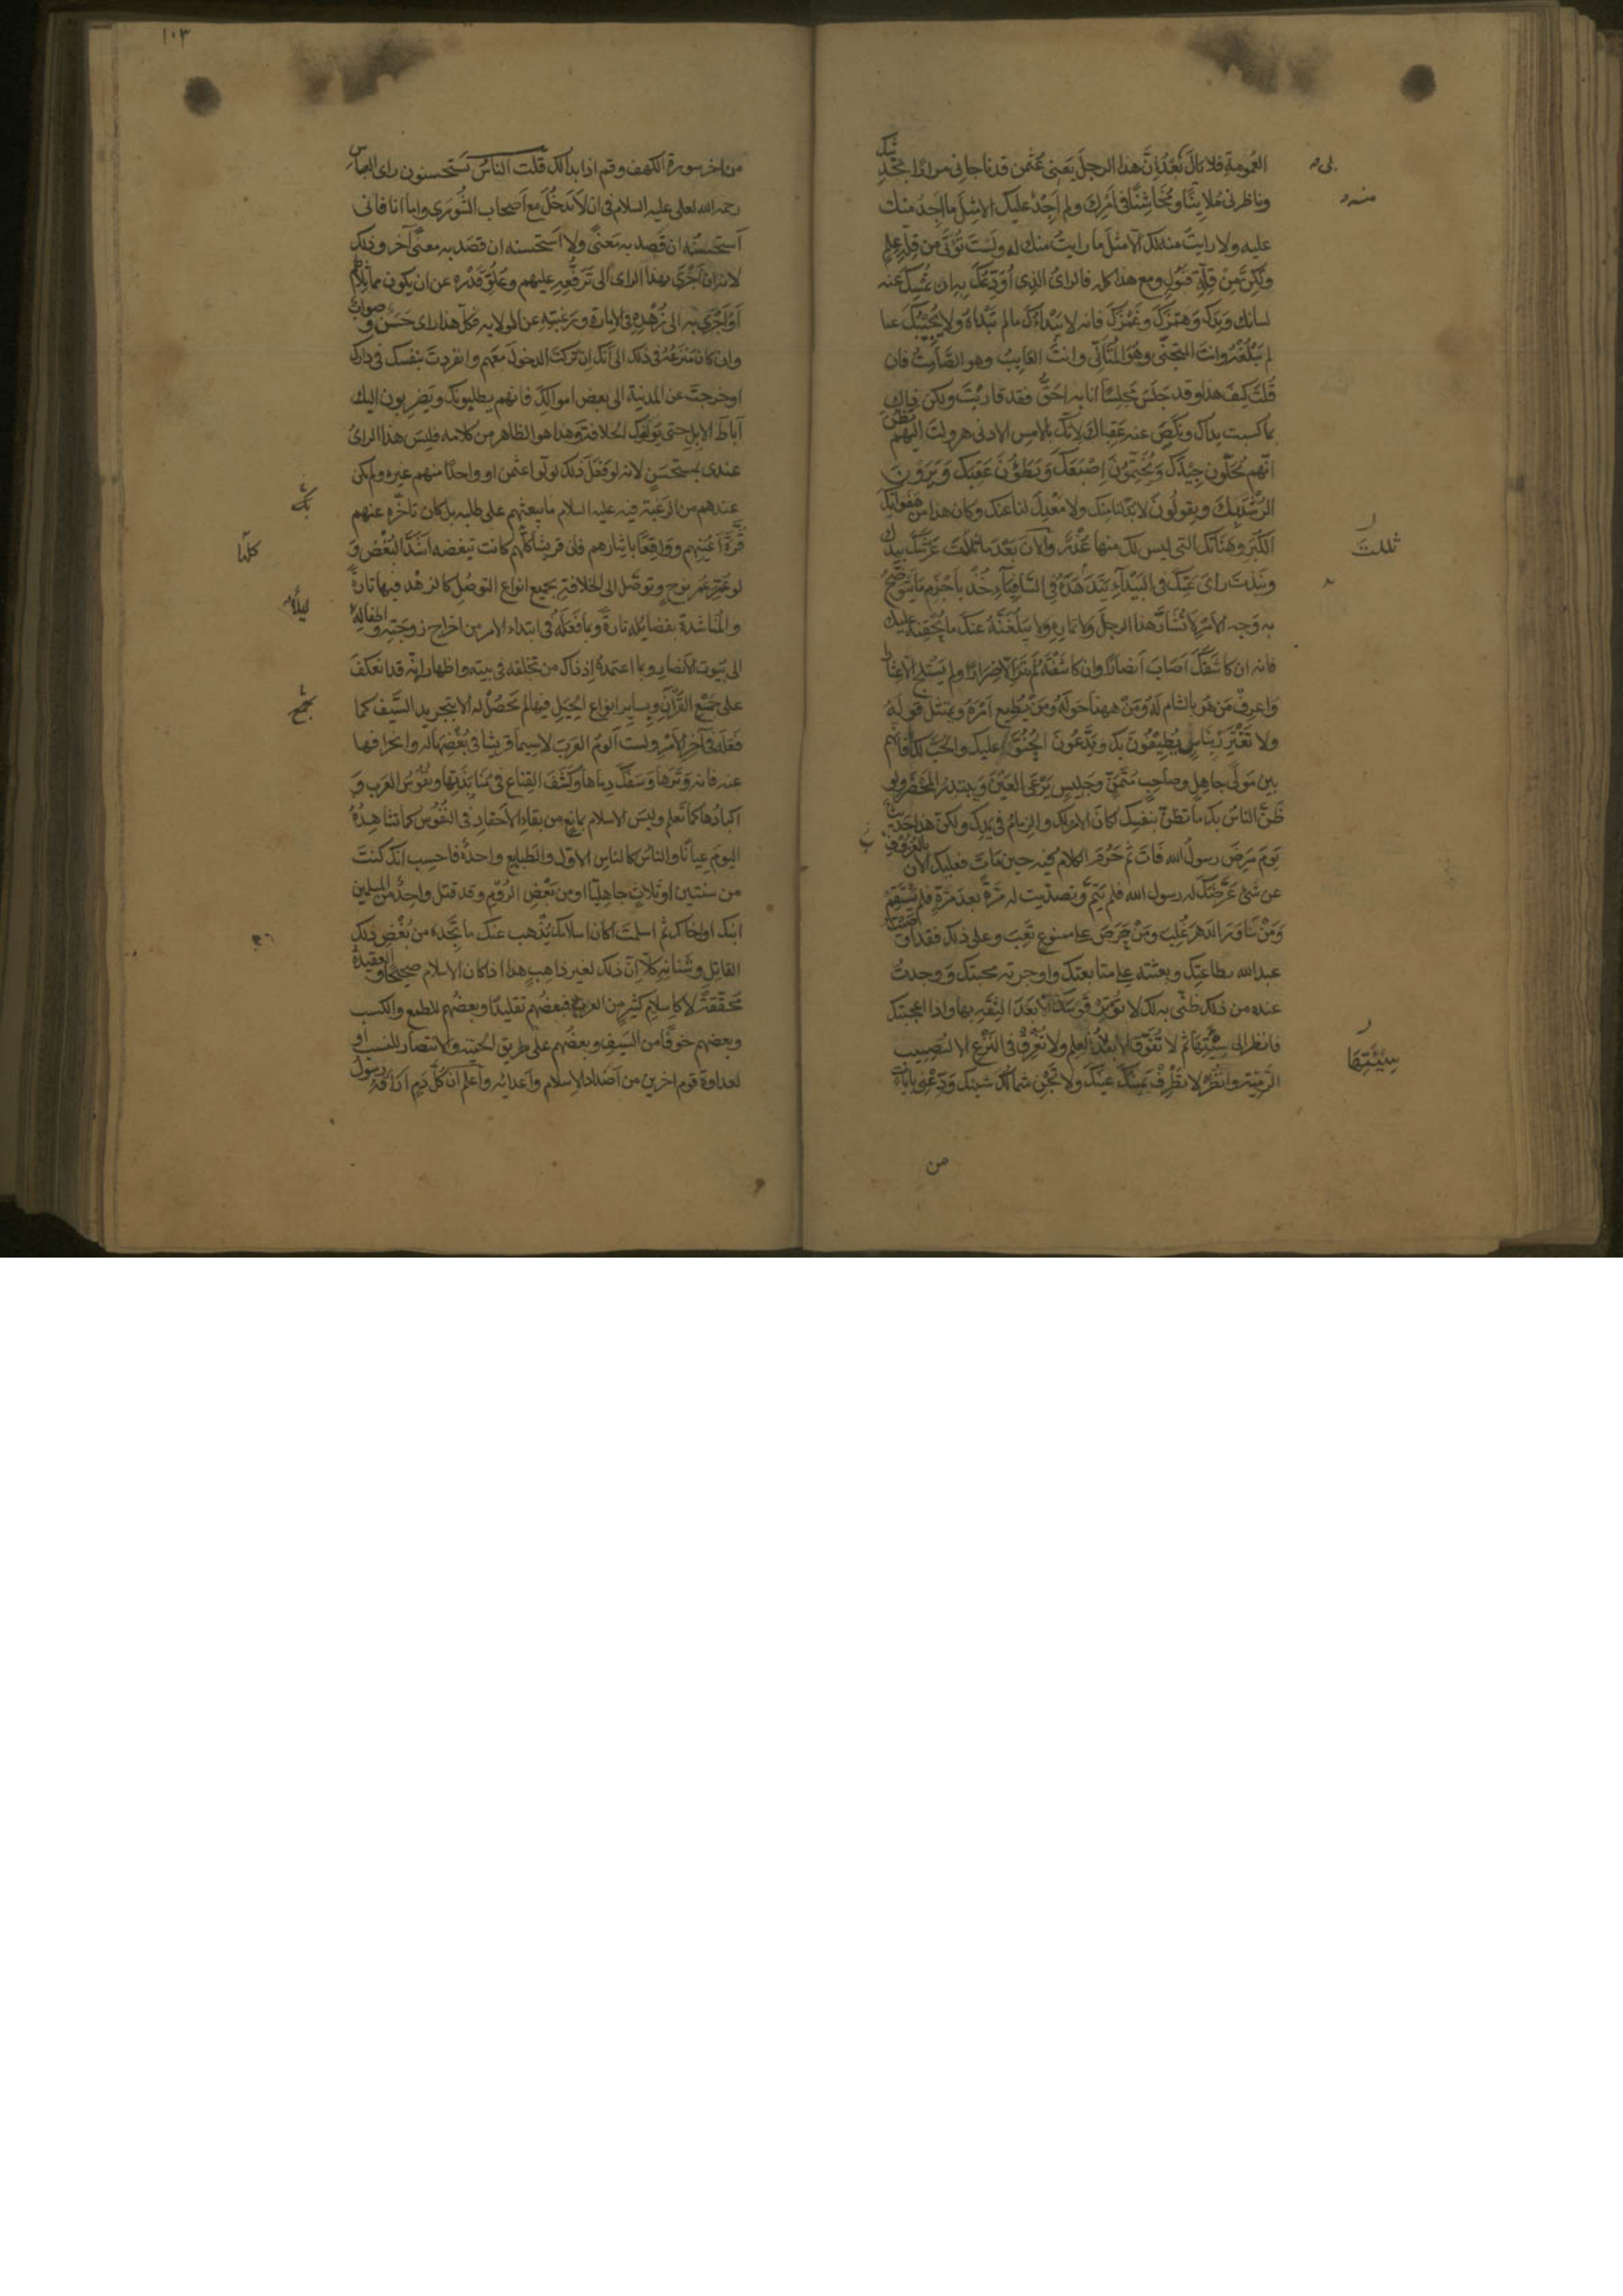 العمومة فلا تال بعد ان هذا الرجل يعني عثمن قد ناجاني مرارا بحديثك
وناظرني ملاينا ومخاشنا في امرك ولم اجد عليك الا مثل ما اجد منك
عليه ولا رايت منه لك الا مثل ما رايت منك له ولست تؤتى من قلة علم
ولكن من قلة قبول ومع هذا كله فالراى الذى اودعك به ان تمسك عنه
لسانك ويدك وهمزك وغمزك فانه لا يبداك ما لم تبداه ولا يجيبك عما
لم يبلغه وانت المتجنى وهو المتانى وانت العايب وهو الصامت فان
قلت كيف هذا وقد جلس مجلسا انا به احق فقد قاربت ولكن ذاك
بما كسبت يداك ونكص عنه عقباك لانك بالامس الادنى هرولت اليهم تظن
انهم يحلون جيدك ويختمون اصبعك ويطؤن عقبك ويرون
الرشد بك ويقولون لا بد لنا منك ولا معدل لنا عنك وكان هذا من هفواتك
الكبر وهناتك التى ليس لك منها عذر والآن بعد ما ثللت عرشك بيدك
ونبذت راى عمك في البيداء يتدهده في السافياء خذ باحزم ما يتوضح
به وجه الامر لا تشار هذا الرجل ولا تماره ولا يبلغنه عنك ما يحنقه عليك
فانه ان كاشفك اصاب انصارا وان كاشفته لم تر الا ضرارا ولم تستلج الا عثارا
واعرف من هو بالشام له ومن ههنا حوله ومن يطيع امره ويمتثل قوله
ولا تغترر بناس يطيفون بك ويدعون الحنو عليك والحب لك فانهم
بين مولى جاهل وصاحب متمن وجليس يرعى العين ويبتدر المحضر ولو
ظن الناس بك ما تظن بنفسك لكان الامر لك والزمام في يدك ولكن هذا حديث
يوم مرض رسول الله فات ثم حرم الكلام فيه حين مات فعليك الآن بالعزوف
عن شئ عرضك له رسول الله فلم يتم وتصديت له مرة بعد مرة فلم يستقم
ومن ساور الدهر غلب ومن حرص على ممنوع تعب وعلى ذلك فقد اوصيت
عبد الله بطاعتك وبعثته على متابعتك واوجرته محبتك ووجدت
عنده من ذلك ظنى به لك لا توتر قوسك الا بعد الثقة بها واذا اعجبتك
فانظر الى سيئتها ثم لا تفوق الا بعد العلم ولا تغرق في النزع الا لتصيب
الرمية وانظر لا تطرف يمينك عينك ولا تجن شمالك شينك ودعنى بايات
من
منه
ثللت
سيئتها
١٠٣
من اخر سورة الكهف وقم اذا بدا لك قلت الناس يستحسنون راى العباس
رحمه الله لعلى عليه السلام في ان لا يدخل مع اصحاب الشورى واما انا فانى
استحسنه ان قصد به معنى ولا استحسنه ان قصد به معنى آخر وذلك
لانه ان اجرى بهذا الراى الى ترفعه عليهم وعلو قدره عن ان يكون مماثلا لهم
او اجرى به الى زهده في الامارة ورغبته عن الولاية فكل هذا راى حسن وصواب
وان كان منزعه في ذلك الى انك ان تركت الدخول معهم وانفردت بنفسك في دارك
او خرجت عن المدينة الى بعض اموالك فانهم يطلبونك ويضربون اليك
آباط الابل حتى يولوك الخلافة وهذا هو الظاهر من كلامه فليس هذا الراى
عندى بمستحسن لانه لو فعل ذلك لولوا عثمن او واحدا منهم غيره ولم يكن
عندهم من الرغبة فيه عليه السلام ما يبعثهم على طلبه بل كان تاخره عنهم
قرة اعينهم وواقعا بايثارهم فان قريشا كلها كانت تبغضه اشد البغض و
لو عمر عمر نوح وتوصل الى الخلافة بجميع انواع التوصل كالزهد فيها تارة
والمناشدة بفضايله تارة وبما فعله في ابتداء الامر من اخراج زوجته واطفاله
الى بيوت الانصار وبما اعتمده اذ ذاك من تخلفه في بيته واظهار انه قد انعكف
على جمع القرآن وبساير انواع الحيل فيها لم تحصل له الا بتجريد السيف كما
فعله في آخر الامر ولست الوم العرب لا سيما قريشا في بغضها له وانحرافها
عنه فانه وترها وسفك دماها وكشف القناع في منابذتها ونفوس العرب و
اكبادها كما تعلم وليس الاسلام بمانع من بقاء الاحقاد في النفوس كما نشاهده
اليوم عيانا والناس كالناس الاول والطبايع واحدة فاحسب انك كنت
من سنتين او ثلاث جاهليا او من بعض الروم وقد قتل واحد من المسلمين
ابنك او اخاك ثم اسلمت اكان اسلامك يذهب عنك ما تجده من بغض ذلك
القاتل وشنانه كلا ان ذلك لغير ذاهب هذا اذا كان الاسلام صحيحا والعقيدة
محققة لا كاسلام كثير من العرب فبعضهم تقليدا وبعضهم للطمع والكسب
وبعضهم خوفا من السيف وبعضهم على طريق الحمية والانتصار للنسب او
لعداوة قوم اخرين من اضداد الاسلام واعدائه واعلم ان كل دم اراقه رسول